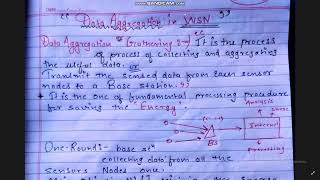 SCANDROID CAM
" Data Aggregation in WSN "
Data Aggregation Gathering :→ "It is the process
of process of collecting and aggregating
the useful data. or
Transmit the sensed data from each sensor
nodes to a Base station."
* It is the one of fundamental processing procedure
for saving the "Energy".
Analysis
Internet
BS
Processing
One-Round :- base
collecting data from all the
Sensors Nodes one